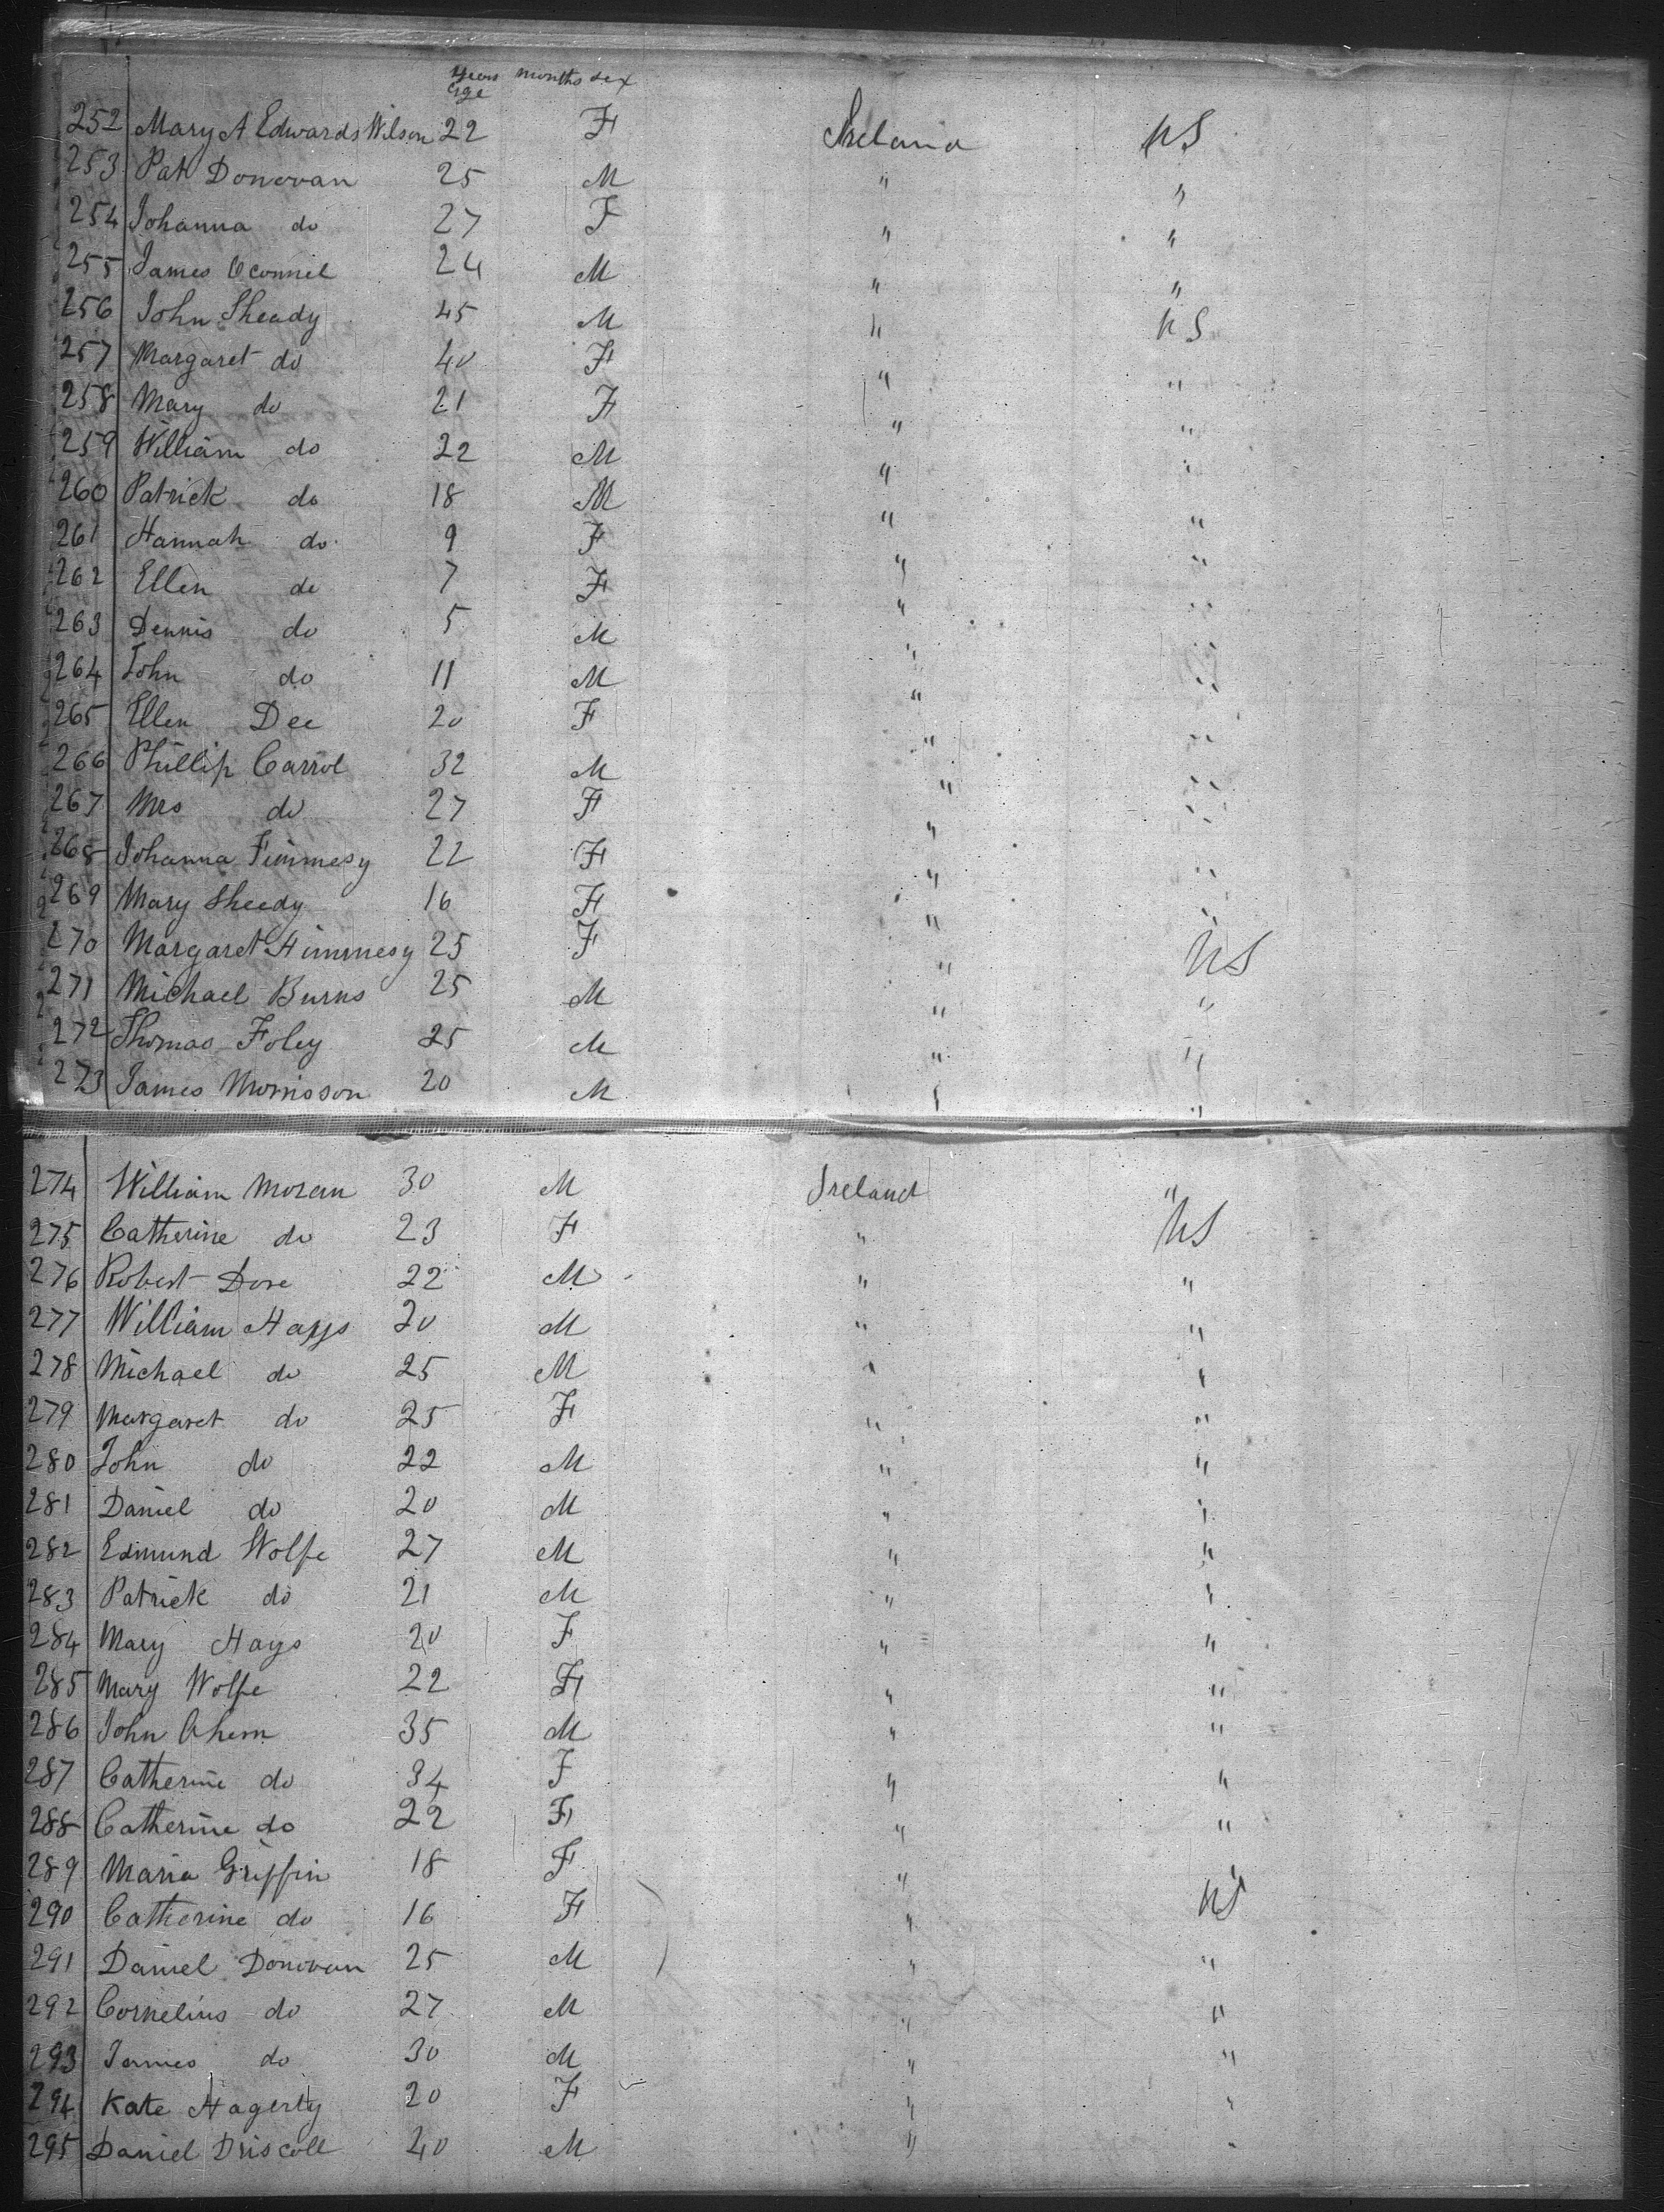 years months sex
age
252 Mary A Edwards Wilson 22 F Ireland US
253 Pat Donovan 25 M " "
254 Johanna do 27 F " "
255 James Oconnel 24 M " "
256 John Sheady 45 M " US
257 Margaret do 40 F " "
258 Mary do 21 F " "
259 William do 22 M " "
260 Patrick do 18 M " "
261 Hannah do 9 F " "
262 Ellen do 7 F " "
263 Dennis do 5 M " "
264 John do 11 M " "
265 Ellen Dee 20 F " "
266 Phillip Carrol 32 M " "
267 Mrs do 27 F " "
268 Johanna 22 F " "
269 Mary Sheedy 16 F " "
270 Margaret 25 F " US
271 Michael Burns 25 M " "
272 Thomas Foley 25 M " "
273 James Morrisson 20 M " "
274 William Moran 30 M Ireland "
275 Catherine do 23 F " US
276 Robert Dore 22 M " "
277 William Hays 20 M " "
278 Michael do 25 M " "
279 Margaret do 25 F " "
280 John do 22 M " "
281 Daniel do 20 M " "
282 Edmund Wolfe 27 M " "
283 Patrick do 21 M " "
284 Mary Hays 20 F " "
285 Mary Wolfe 22 F " "
286 John Ahern 35 M " "
287 Catherine do 34 F " "
288 Catherine do 22 F " "
289 Maria Griffin 18 F " US
290 Catherine do 16 F "
291 Daniel Donovan 25 M " "
292 Cornelius do 27 M " "
293 James do 30 M " "
294 Kate Hagerty 20 F " "
295 Daniel Driscoll 40 M " "